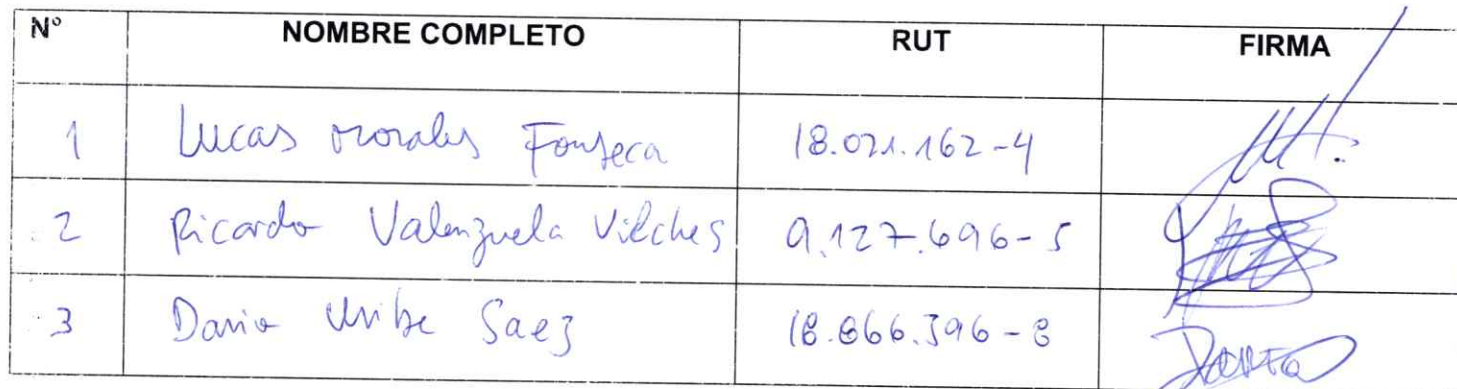 N° NOMBRE COMPLETO RUT FIRMA
1 Lucas Morales Fonseca 18.021.162-4
2 Ricardo Valenzuela Vilches 9.127.696-5
3 Dario Uribe Saez